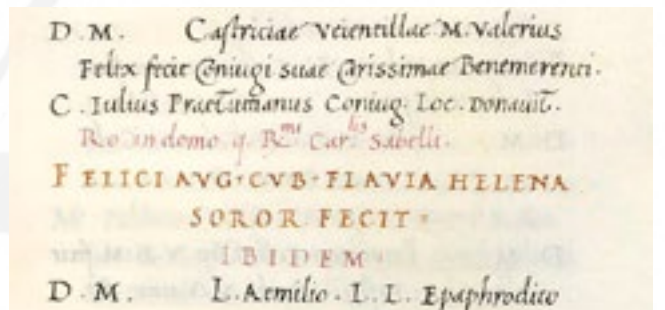 D. M. Castriciae Veientillae M. Valerius
Felix fecit Coniugi suae Carissimae Benemerenti.
C. Iulius Praetumianus Coniug. Loc. Donauit.
Ro in domo q. Rmi Carlis Sabelli.
FELICI AVG · CVB · FLAVIA HELENA
SOROR FECIT ·
IBIDEM
D. M. L. Aemilio. L. L. Epaphrodito